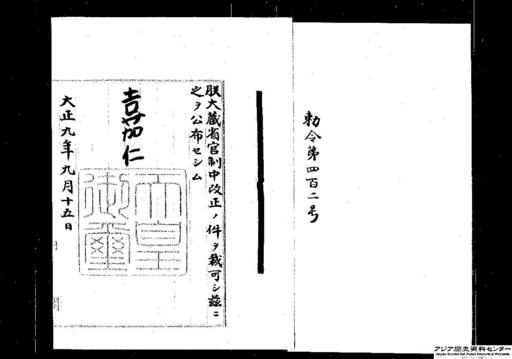 勅令第四百二号
朕大蔵省官制中改正ノ件ヲ裁可シ茲ニ
之ヲ公布セシム
嘉仁
天皇
御璽
大正九年九月十五日
アジア歴史資料センター
Japan Center for Asian Historical Records